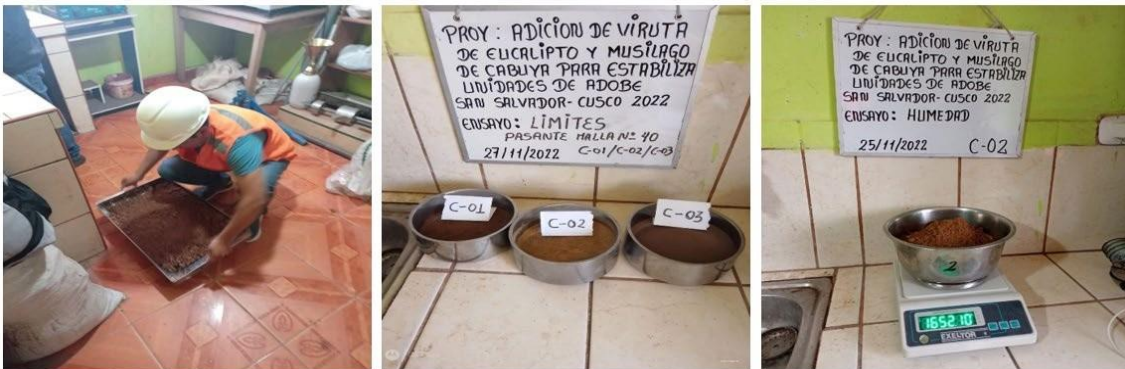 PROY: ADICION DE VIRUTA
DE EUCALIPTO Y MUSILAGO
DE CABUYA PARA ESTABILIZA
UNIDADES DE ADOBE
SAN SALVADOR-CUSCO 2022
ENSAYO: LIMITES
PASANTE MALLA Nº 40
27/11/2022 C-01/C-02/C-03
C-01
C-02
C-03
PROY: ADICION DE VIRUTA
DE EUCALIPTO Y MUSILAGO
DE CABUYA PARA ESTABILIZA
UNIDADES DE ADOBE
SAN SALVADOR-CUSCO 2022
ENSAYO: HUMEDAD
25/11/2022 C-02
2
1652.10
EXELTOR